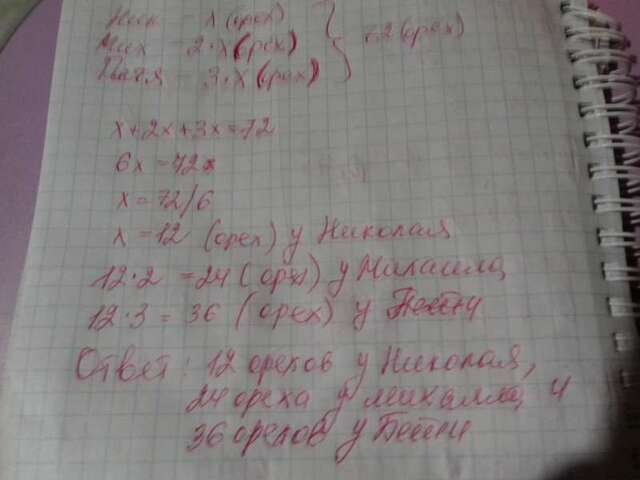 Ник - x (орех)
Мих - 2·x (орех)
- 3·x (орех)
72 (орех)
x+2x+3x=72
6x = 72
x = 72/6
x = 12 (орех) у Николая
12·2 = 24 (орех) у
12·3 = 36 (орех) у
Ответ: 12 орехов у Николая,
24 ореха у и
36 орехов у